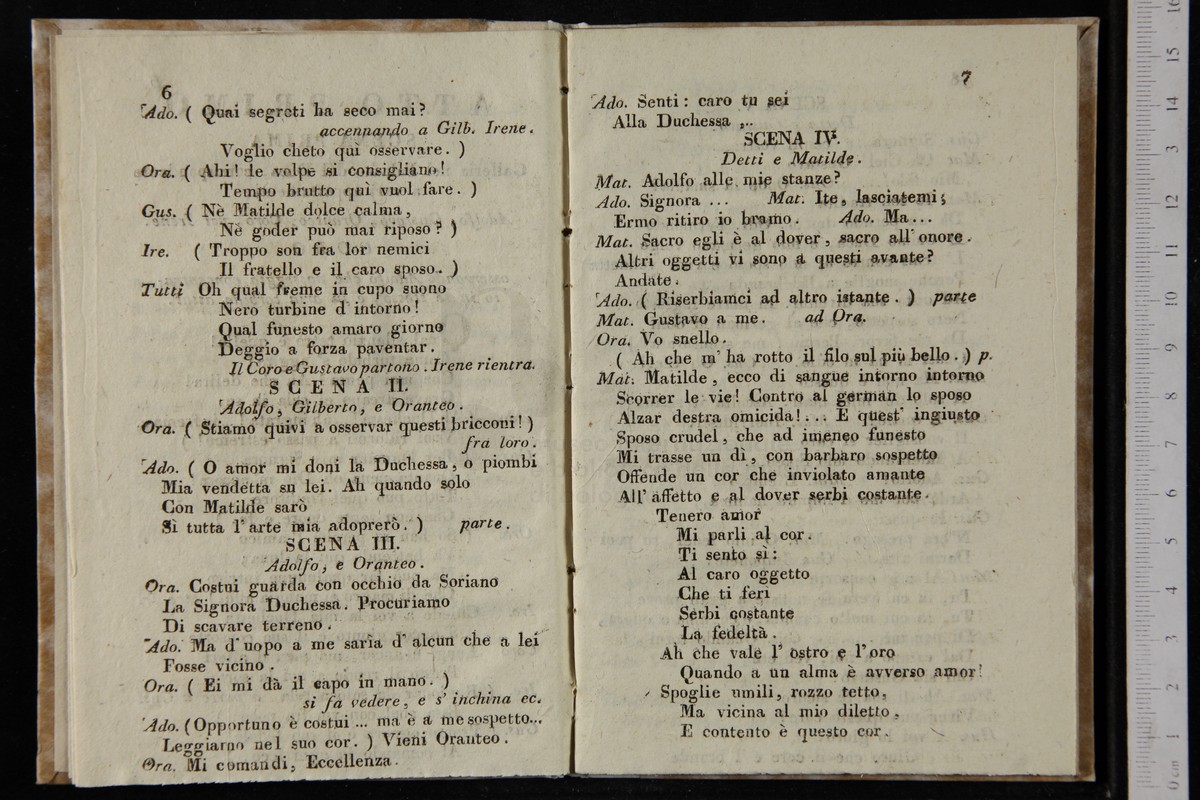 6
Ado. ( Quai segreti ha seco mai?
accennando a Gilb. Irene.
Voglio cheto quì osservare. )
Ora. ( Ahi! le volpe si consigliano!
Tempo brutto quì vuol fare. )
Gus. ( Nè Matilde dolce calma,
Nè goder può mai riposo? )
Ire. ( Troppo son fra lor nemici
Il fratello e il caro sposo. )
Tutti Oh qual freme in cupo suono
Nero turbine d'intorno!
Qual funesto amaro giorno
Deggio a forza paventar.
Il Coro e Gustavo partono. Irene rientra.
SCENA II.
Adolfo, Gilberto, e Oranteo.
Ora. ( Stiamo quivi a osservar questi bricconi! )
fra loro.
Ado. ( O amor mi doni la Duchessa, o piombi
Mia vendetta su lei. Ah quando solo
Con Matilde sarò
Sì tutta l'arte mia adoprerò. ) parte.
SCENA III.
Adolfo, e Oranteo.
Ora. Costui guarda con occhio da Soriano
La Signora Duchessa. Procuriamo
Di scavare terreno.
Ado. Ma d'uopo a me sarìa d'alcun che a lei
Fosse vicino.
Ora. ( Ei mi dà il capo in mano. )
si fa vedere, e s'inchina ec.
Ado. (Opportuno è costui ... ma è a me sospetto...
Leggiamo nel suo cor. ) Vieni Oranteo.
Ora. Mi comandi, Eccellenza.
7
Ado. Senti: caro tu sei
Alla Duchessa ...
SCENA IV.
Detti e Matilde.
Mat. Adolfo alle mie stanze?
Ado. Signora ... Mat. Ite, lasciatemi;
Ermo ritiro io bramo. Ado. Ma...
Mat. Sacro egli è al dover, sacro all'onore.
Altri oggetti vi sono a questi avante?
Andate.
Ado. ( Riserbiamci ad altro istante. ) parte
Mat. Gustavo a me. ad Ora.
Ora. Vo snello.
( Ah che m'ha rotto il filo sul più bello. ) p.
Mat. Matilde, ecco di sangue intorno intorno
Scorrer le vie! Contro al german lo sposo
Alzar destra omicida! ... E quest' ingiusto
Sposo crudel, che ad imeneo funesto
Mi trasse un dì, con barbaro sospetto
Offende un cor che inviolato amante
All' affetto e al dover serbi costante.
Tenero amor
Mi parli al cor.
Ti sento sì:
Al caro oggetto
Che ti ferì
Serbi costante
La fedeltà.
Ah che vale l' ostro e l'oro
Quando a un alma è avverso amor!
Spoglie umili, rozzo tetto,
Ma vicina al mio diletto,
E contento è questo cor.